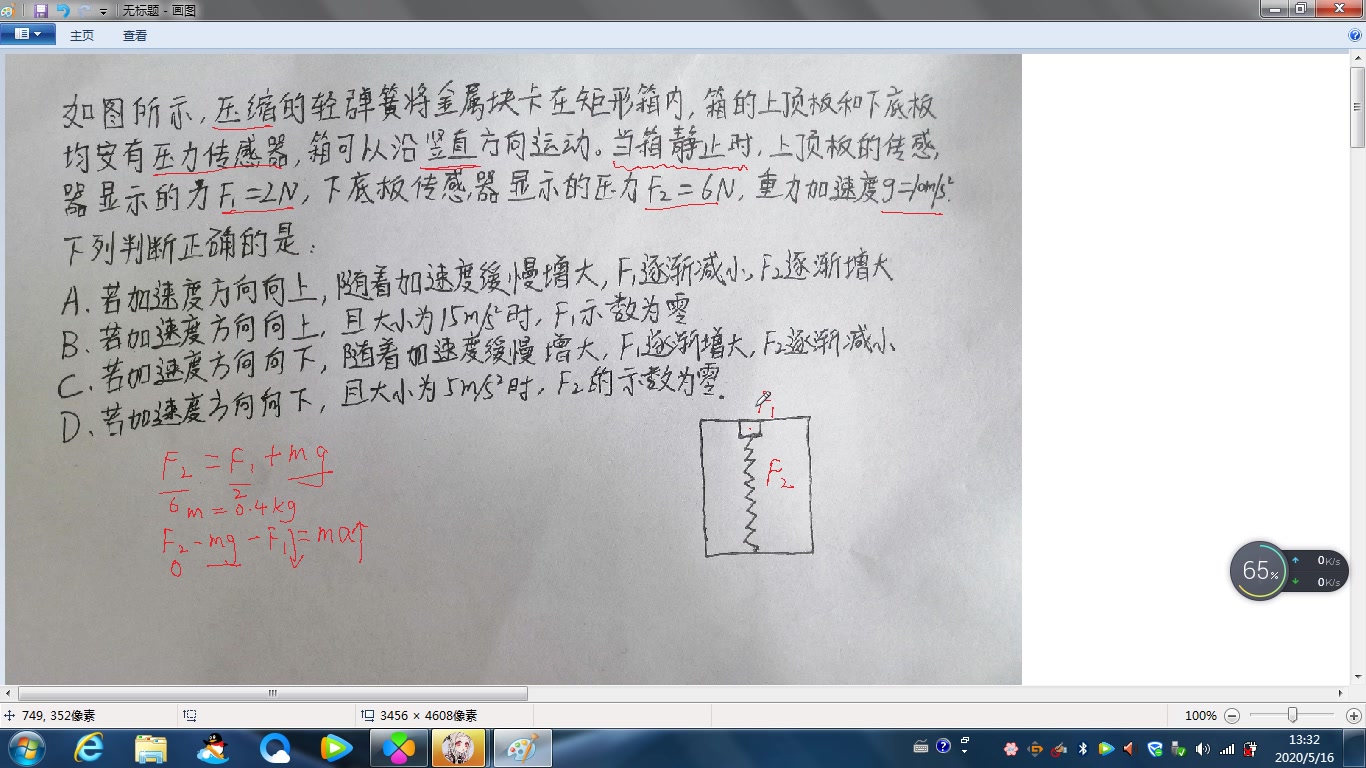 无标题 - 画图
主页 查看
如图所示，压缩的轻弹簧将金属块卡在矩形箱内，箱的上顶板和下底板
均安有压力传感器，箱可以沿竖直方向运动。当箱静止时，上顶板的传感
器显示的为F₁=2N，下底板传感器显示的压力F₂=6N，重力加速度g=10m/s².
下列判断正确的是：
A、若加速度方向向上，随着加速度缓慢增大，F₁逐渐减小，F₂逐渐增大
B、若加速度方向向上，且大小为15m/s²时，F₁示数为零
C、若加速度方向向下，随着加速度缓慢增大，F₁逐渐增大，F₂逐渐减小
D、若加速度方向向下，且大小为5m/s²时，F₂的示数为零.
F₁
F₂
F₂ = F₁ + mg
6 2
m = 0.4kg
F₂ - mg - F₁ = ma
0
65%
0K/s
0K/s
749, 352像素
3456 × 4608像素
100%
13:32
2020/5/16